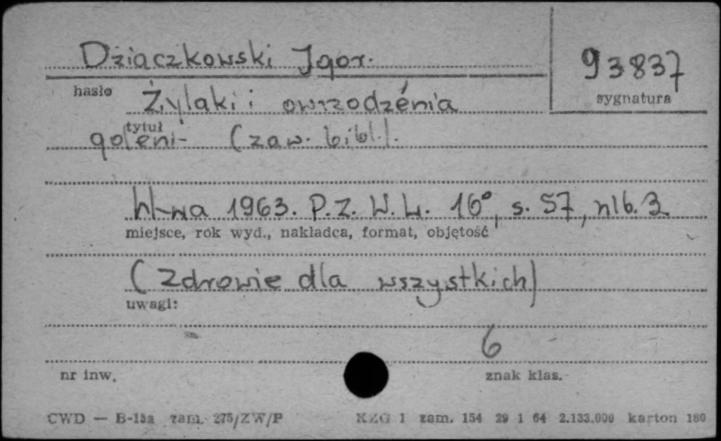 Dziaczkowski Igor.
93837
hasło
sygnatura
Żylaki i owrzodzenia
tytuł
goleni- (zaw. bibl.).
W-wa 1963. P.Z.W.L. 16°, s. 57, nlb. 3
miejsce, rok wyd., nakładca, format, objętość
(Zdrowie dla wszystkich)
uwagi:
6
nr inw.
znak klas.
CWD — B-15a zam. 275/ZW/P KZG 1 zam. 154 29 1 64 2.133.000 karton 180